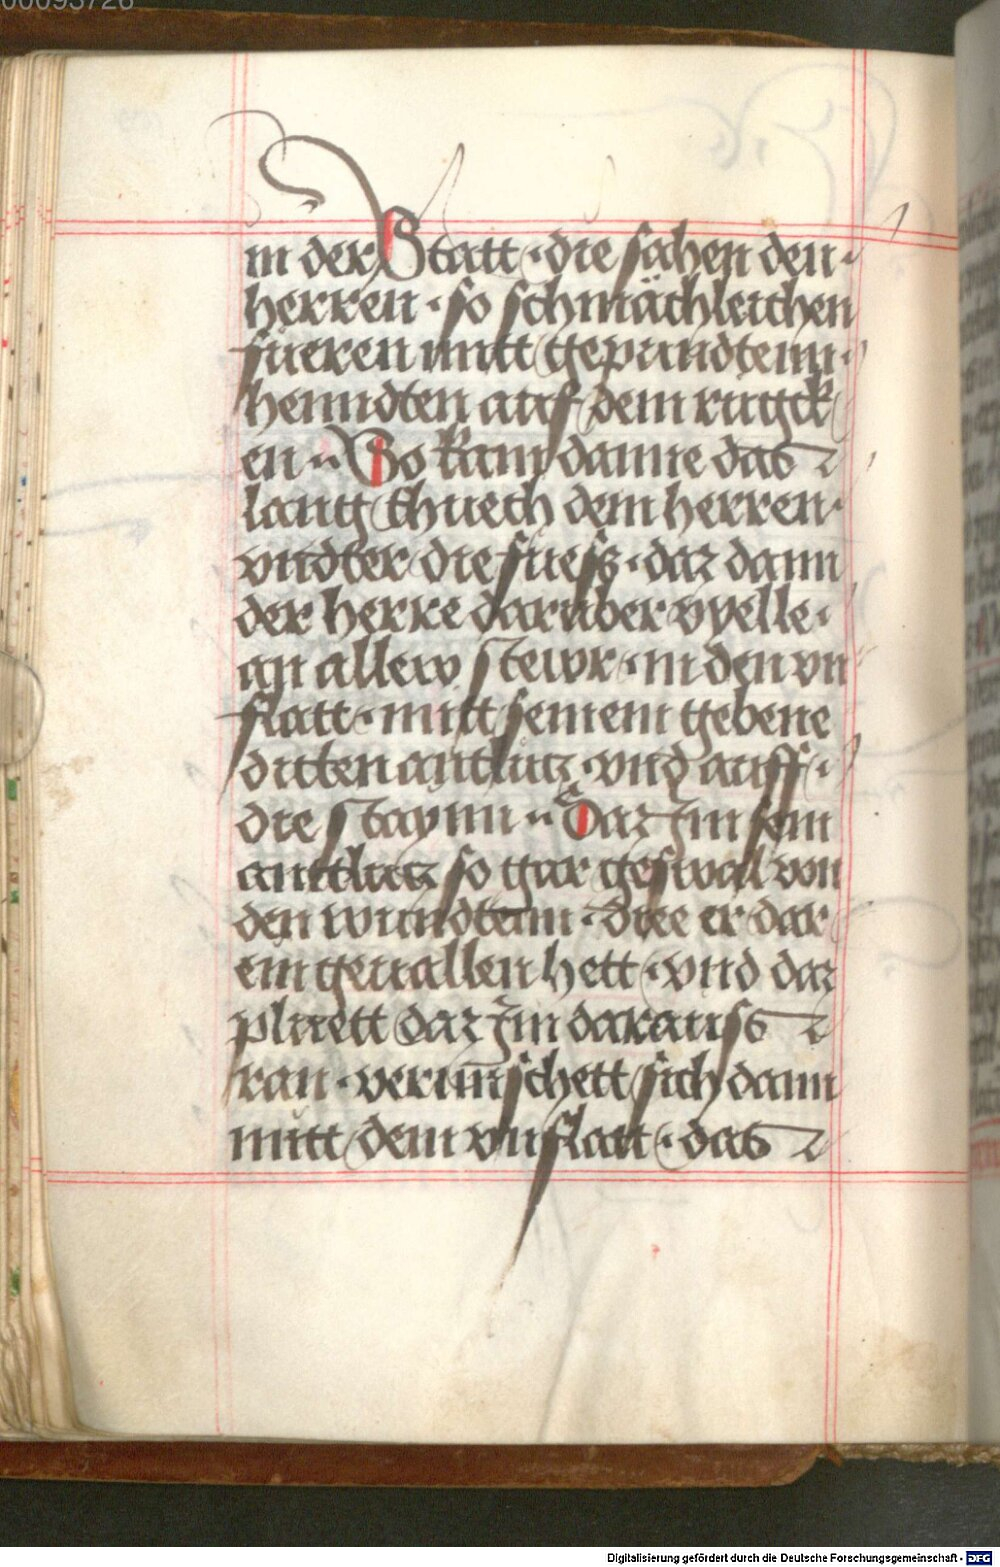 00093726
in der Statt · die sahen den ·
herren · so schmächleichen
fueren mitt gepundtenn ·
henndten auf dem rugck
en ·· So kam danne das
lang thuech dem herren ·
vndter die fuess · daz dann
der herre daruber vyelle ·
an allew stewr · in den vn
flatt · mitt seinem gebene
deitten antlutz · vnd auff ·
die staynn ·· Daz Im sein
anttlutz so gar geswal von
den wundtenn · die er dar
ein geuallen hett · vnd daz
pluett daz Im darauss
ran · vermischett sich dann
mitt dem vnflatt · das
Digitalisierung gefördert durch die Deutsche Forschungsgemeinschaft - DFG